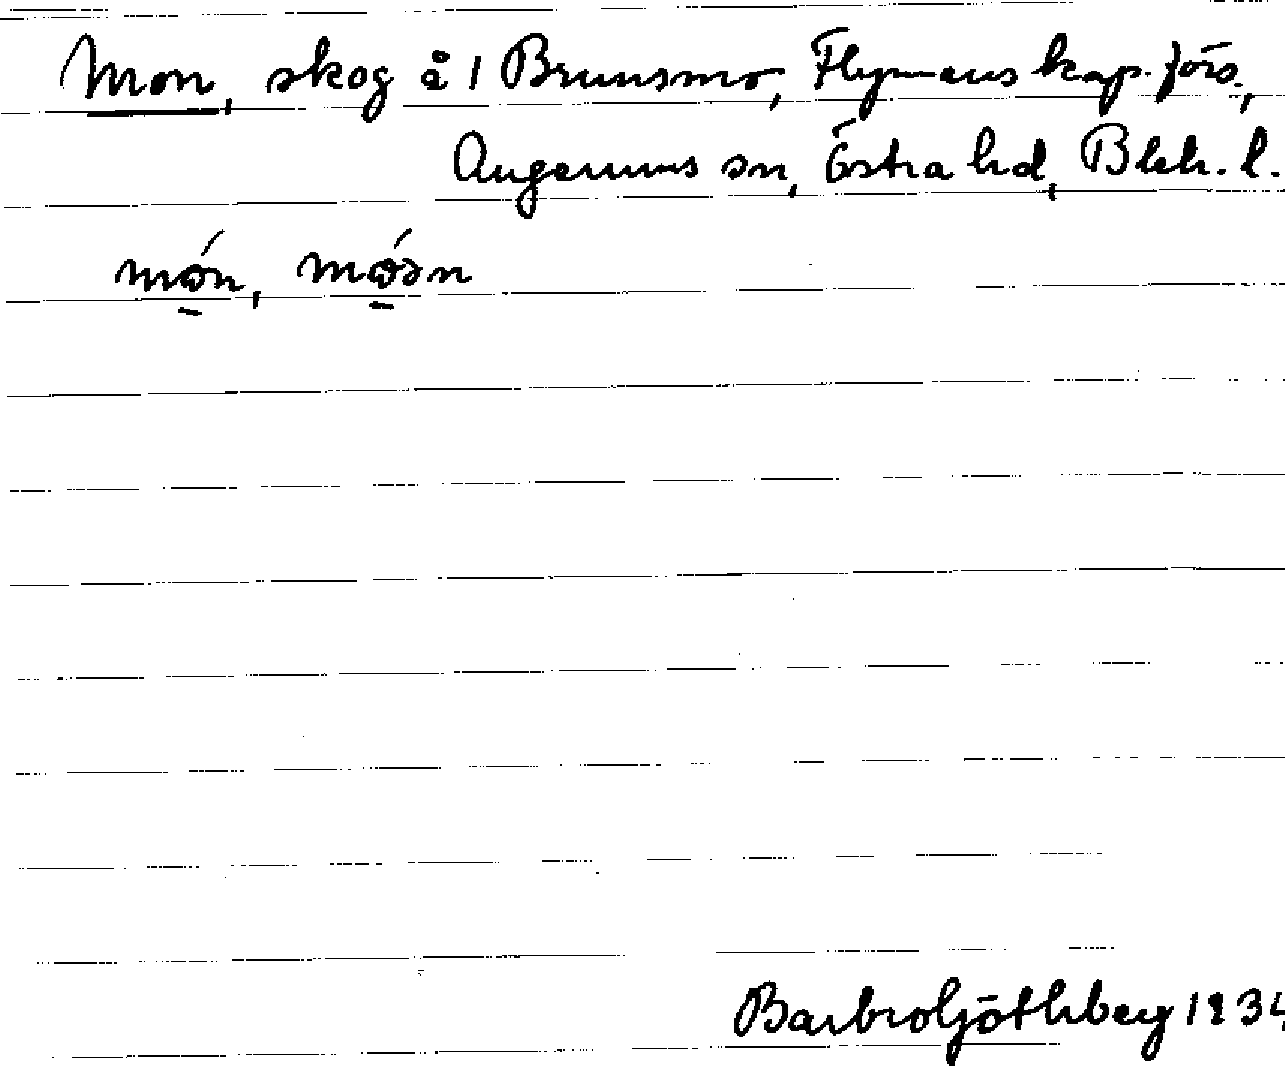 Mon, skog å 1 Brunsmo, Flymens kap. förs.,
Augerums sn, Östra hd, Blek. l.
Barbro Göthberg 193